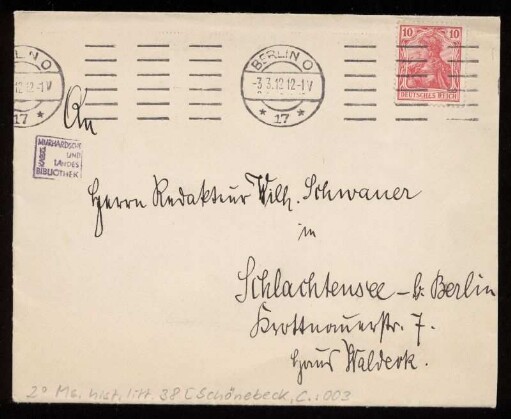 BERLIN O
-3.3.12 12-1V
* 17 *
10 10
DEUTSCHES REICH
An
MURHARDSCHE
UND
LANDES
BIBLIOTHEK
Herrn Redakteur Wilh. Schwaner
in
Schlachtensee - b. Berlin
Krottnauerstr. 7.
Haus Waldeck.
2° Ms. hist. litt. 38 [Schönebeck, C.: 003